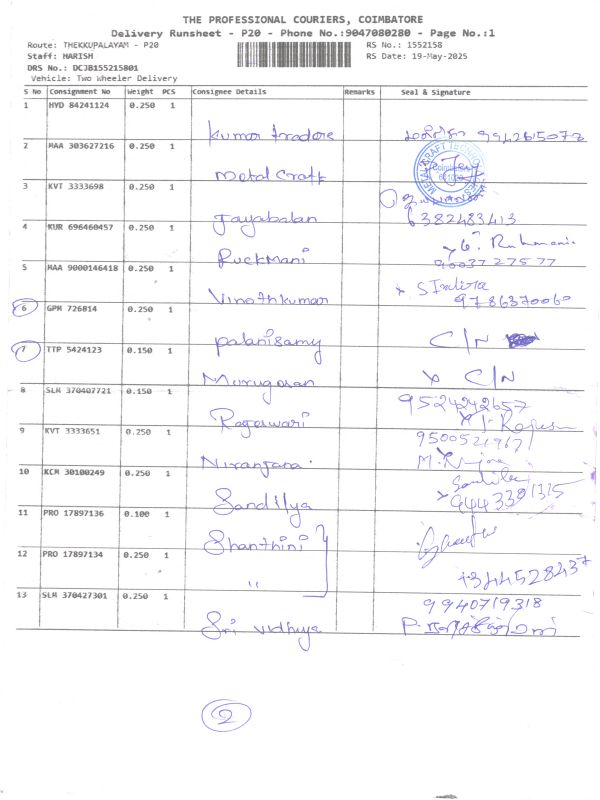 THE PROFESSIONAL COURIERS, COIMBATORE
Delivery Runsheet - P20 - Phone No.:9047080280 - Page No.:1
Route: THEKKUPALAYAM - P20 RS No.: 1552158
Staff: HARISH RS Date: 19-May-2025
DRS No.: DCJB155215801
Vehicle: Two Wheeler Delivery
S No Consignment No Weight PCS Consignee Details Remarks Seal & Signature
1 HYD 84241124 0.250 1
Kumar Traders 9942615073
2 MAA 303627216 0.250 1
Metal Craft
3 KVT 3333698 0.250 1
Jayabalan 6382483413
4 KUR 696460457 0.250 1
Ruckmani 9003727577
5 MAA 9000146418 0.250 1
Vinothkumar x S Indira
9786370060
6 GPM 726814 0.250 1
Palanisamy C/N
7 TTP 5424123 0.150 1
Murugesan x C/N
8 SLM 370407721 0.150 1 9524242657
Rageswari
9 KVT 3333651 0.250 1 9500521967
Niranjana
10 KCM 30100249 0.250 1
Sandilya 9443381315
11 PRO 17897136 0.100 1
Shanthini
12 PRO 17897134 0.250 1
"
13 SLM 370427301 0.250 1 9940719318
Sri Vidhya
2